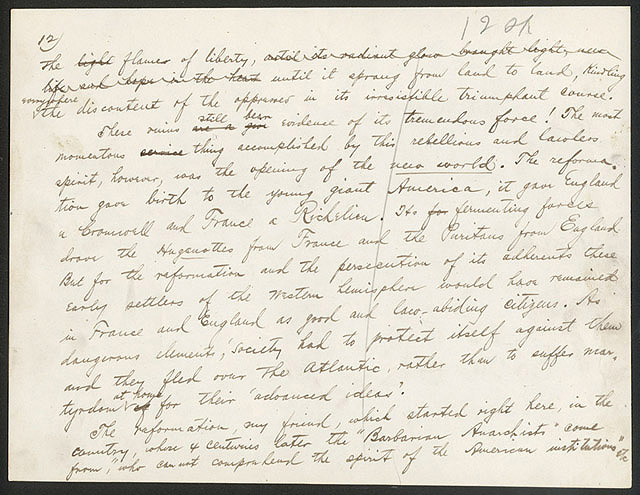 12)
12 ch
the light flames of liberty, until its radiant glow brought light, new
life and hope in the heart until it sprang from land to land, kindling
everywhere
the discontent of the oppressed in its irresistible triumphant course.
still bear
These ruins are a evidence of its tremendous force! The most
momentous service thing accomplished by this rebellious and lawless
spirit, however, was the opening of the new world. The reforma-
tion gave birth to the young giant America, it gave England
a Cromwell and France a Richelieu. Its fermenting forces
drove the Hugenottes from France and the Puritans from England
But for the reformation and the persecution of its adherents these
early settlers of the Western hemisphere would have remained
in France and England as good and law-abiding citizens. As
dangerous elements, society had to protect itself against them
and they fled over the Atlantic, rather than to suffer mar-
at home
tyrdom for their "advanced ideas".
The reformation, my friend, which started right here, in the
country, where 4 centuries later the "Barbarian Anarchists" come
from, "who can not comprehend the spirit of the American institutions" etc